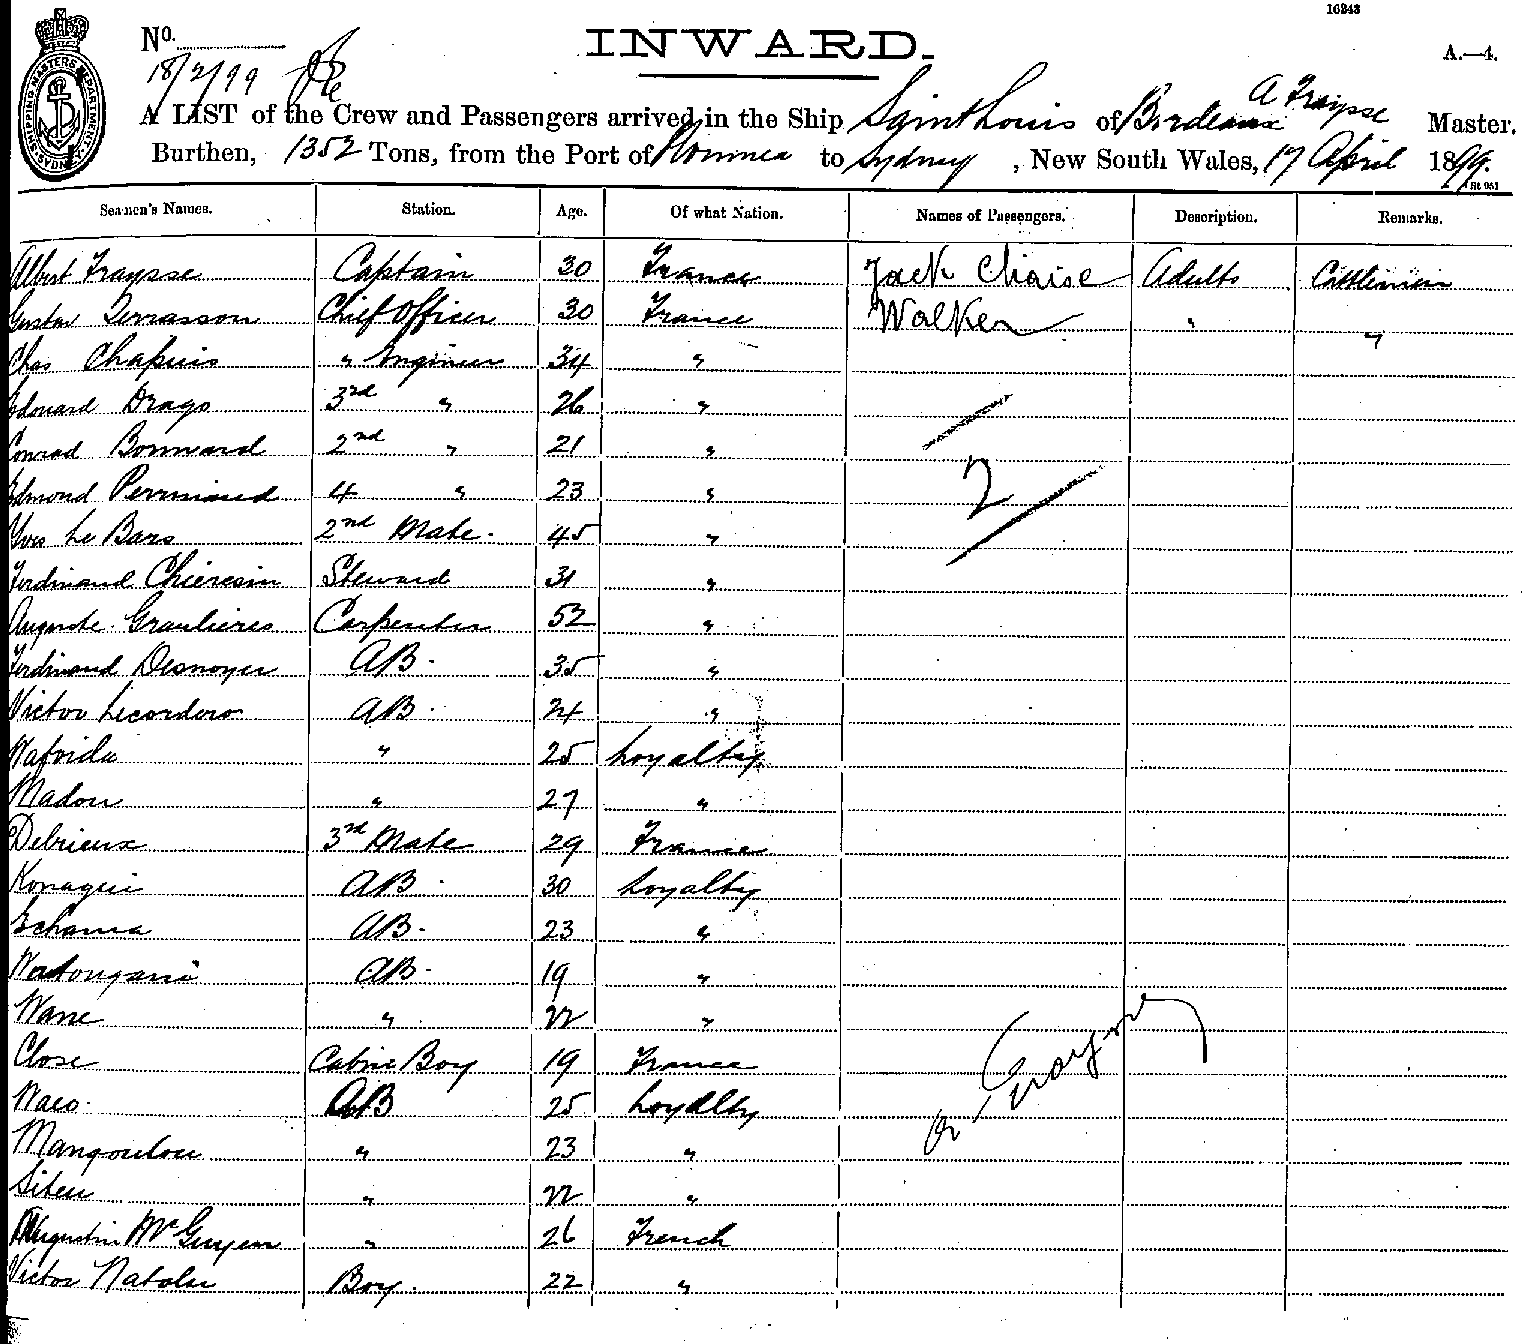 16243
No.
INWARD.
A.—4.
18/2/99
SHIPPING MASTERS DEPARTMENT
A LIST of the Crew and Passengers arrived in the Ship Saint Louis of Bordeaux A Fraysse Master.
Burthen, 1352 Tons, from the Port of Noumea to Sydney, New South Wales, 17 April 1899.
Seamen's Names. Station. Age. Of what Nation. Names of Passengers. Description. Remarks.
Albert Fraysse Captain 30 France Jack Chaise Adults Cattlemen
Gustav Terrasson Chief Officer 30 France Walker " "
Chas Chapuis " Engineer 34 "
Edouard Drago 3rd " 26 "
Conrad Bonnard 2nd " 21 "
Edmond 4 " 23 "
Yves Le Bars 2nd Mate. 45 "
Ferdinand Steward 31 "
Auguste Graulieres Carpenter 52 "
Ferdinand Desnoyer AB. 35 "
Victor AB. 24 "
2
" 25 Loyalty
Madou " 27 "
Debrieux 3rd Mate 29 France
Konagui AB. 30 Loyalty
AB. 23 "
AB. 19 "
Wane " 22 "
Close Cabin Boy 19 France
Waco. AB 25 Loyalty
Mangoulou " 23 "
Siteu " 22 "
Augustin " 26 French
Victor Boy. 22 "
A Fraysse